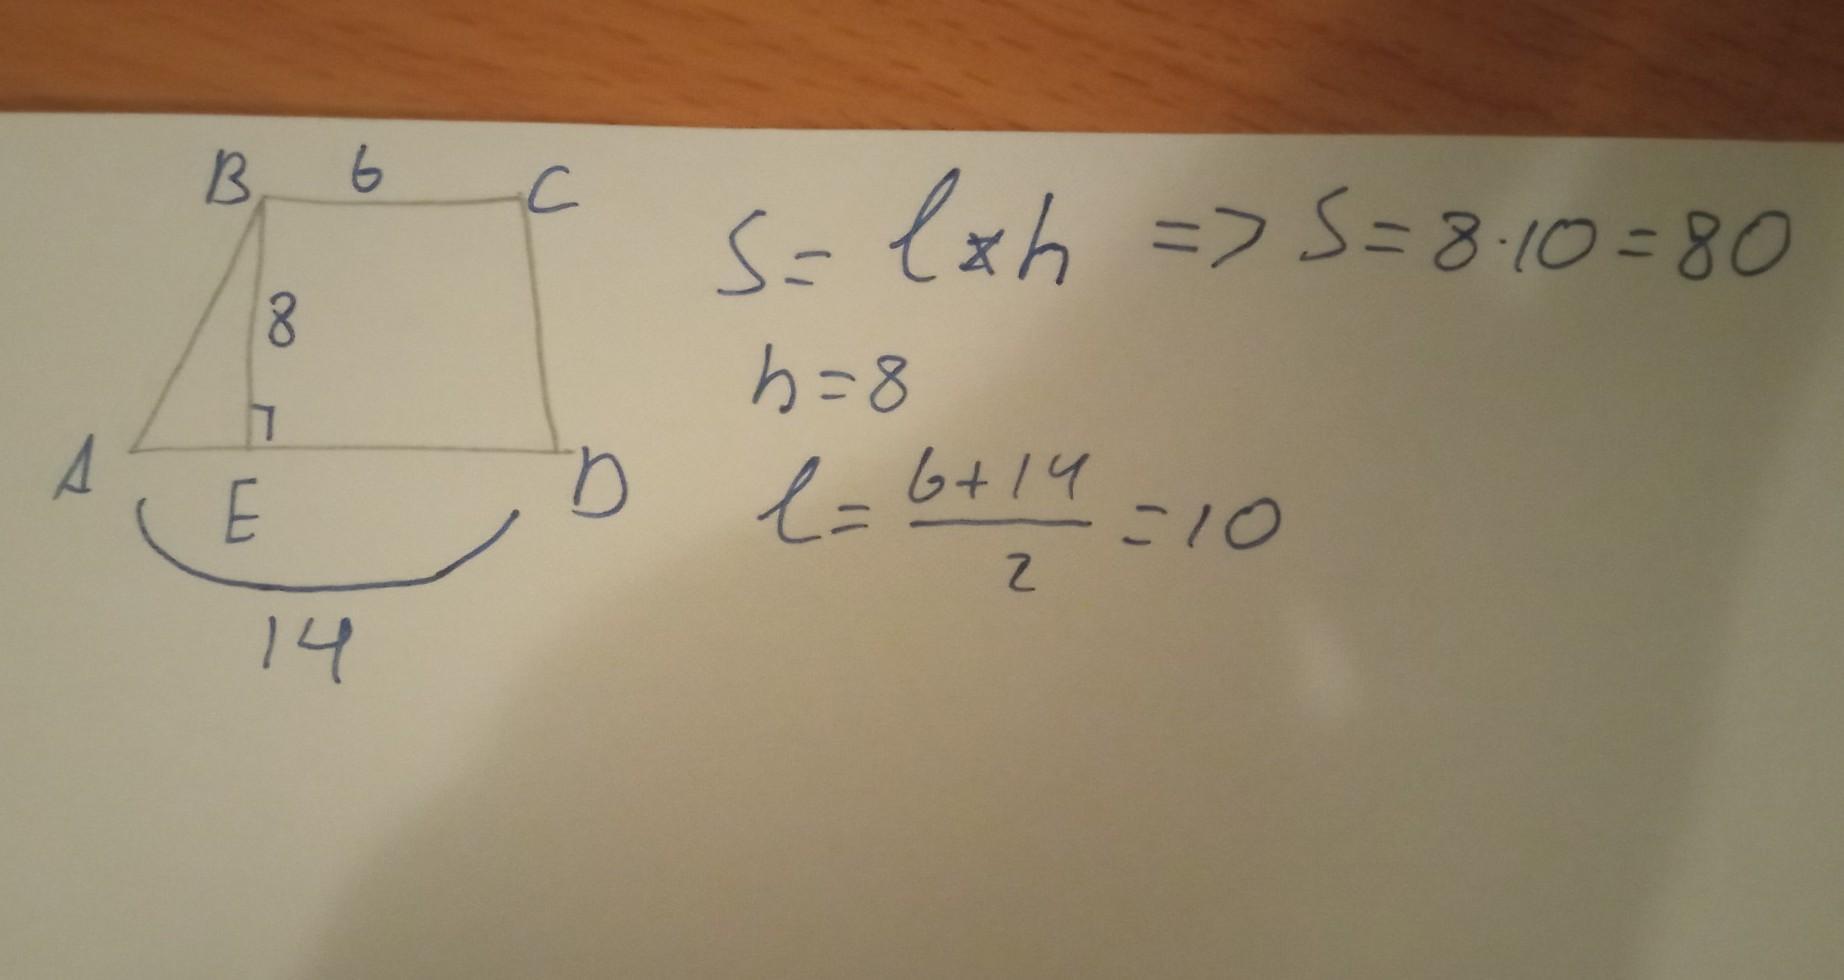 B 6 C
8
A E D
14
S = l × h => S = 8 · 10 = 80
h = 8
l = 6 + 14 / 2 = 10